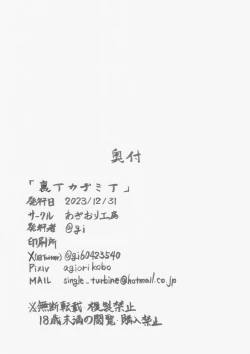 奥付
「裏アカデミア」
発行日 2023/12/31
サークル わぎおり工房
発行者 @gi
印刷所
X(旧Twitter) @gi60423540
Pixiv agiorikobo
MAIL single_turbine@hotmail.co.jp
※無断転載 複製禁止
18歳未満の閲覧・購入禁止